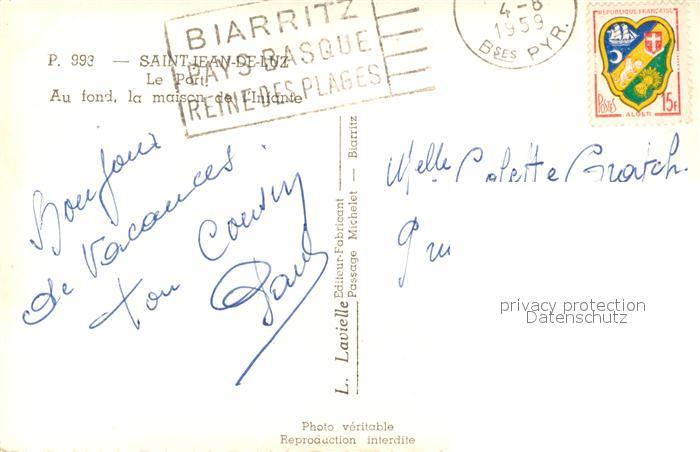 BIARRITZ
PAYS BASQUE
REINE DES PLAGES
4-8
1959
BSES PYR.
REPUBLIQUE FRANÇAISE
POSTES
15F
ALGER
P. 993 — SAINT-JEAN-DE-LUZ
Le Port
Au fond, la maison de l'Infante
Bonjour
de Vacances.
ton Cousin
Paul
L. Lavielle Editeur-Fabricant
Passage Michelet - Biarritz
Melle Colette
privacy protection
Datenschutz
Photo véritable
Reproduction interdite